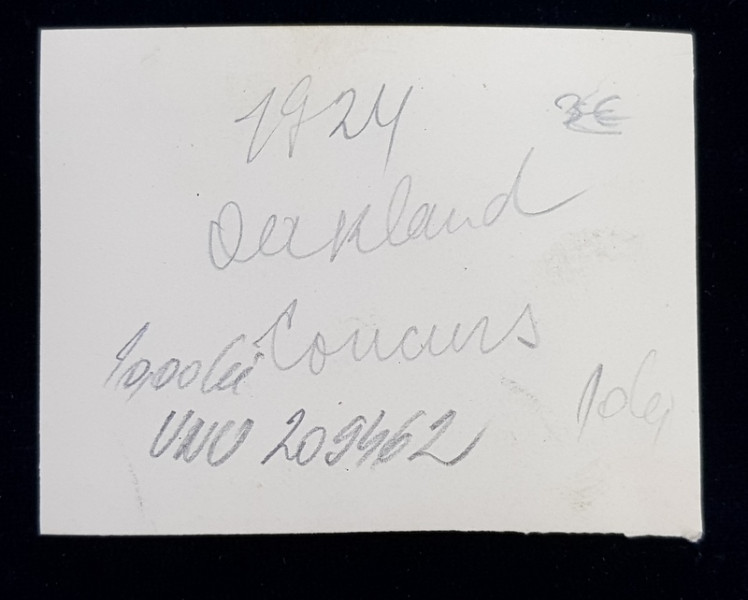 1924
3€
Oakland
Concurs
10,00 lei
10 lei
UNU 209462